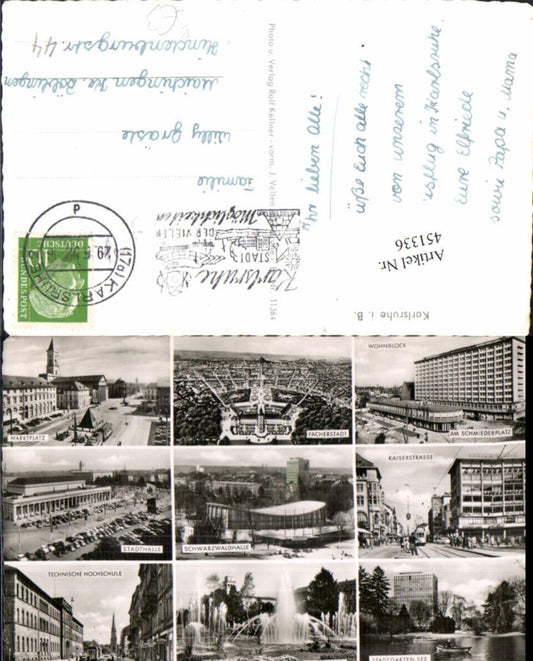 Ihr lieben Alle!
üße Euch alle recht
von unserem
usflug in Karlsruhe.
Eure Elfriede
sowie Papa u. Mama
Artikel Nr.
451336
Karlsruhe i. B.
11264
Photo u. Verlag Rolf Kellner - vorm. J. Velten
Karlsruhe
STADT
DER VIELEN
Möglichkeiten
(17a) KARLSRUHE
DEUTSCHE
BUNDESPOST
10
Familie
Willy Gräsle
Maichingen Kr. Böblingen
Hindenburgstr. 44
MARKTPLATZ
FÄCHERSTADT
WOHNBLOCK
AM SCHMIEDERPLATZ
STADTHALLE
SCHWARZWALDHALLE
KAISERSTRASSE
TECHNISCHE HOCHSCHULE
STADTGARTEN-SEE